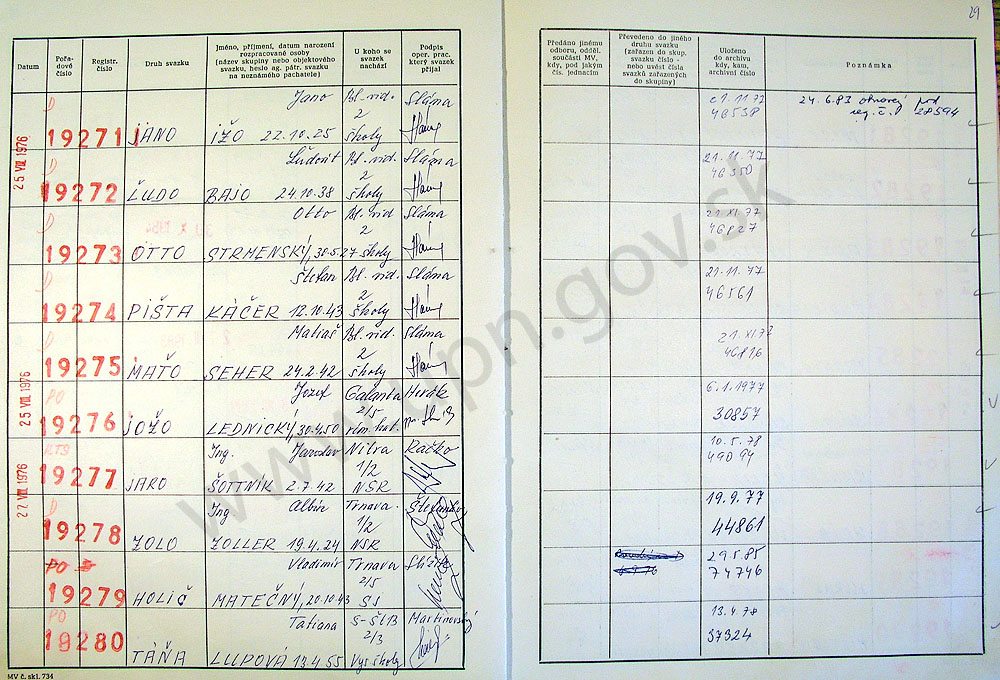 29
Datum
Pořa-
dové
číslo
Registr.
číslo
Druh svazku
Jméno, příjmení, datum narození
rozpracované osoby
(název skupiny nebo objektového
svazku, heslo ag. pátr. svazku
na neznámého pachatele)
U koho se
svazek
nachází
Podpis
oper. prac.
který svazek
přijal
Předáno jinému
odboru, odděl.
součásti MV,
kdy, pod jakým
čís. jednacím
Převedeno do jiného
druhu svazku
(zařazen do skup.
svazku číslo -
nebo uvést čísla
svazků zařazených
do skupiny)
Uloženo
do archivu
kdy, kam,
archivní číslo
Poznámka
25 VIII 1976
D
19271
JANO
Jano
IŽO 22.10.25
2
školy
Sláma
46538
24.6.83
28594
D
19272
ĽUDO
Ľudovít
BAJO 24.10.38
2
školy
Sláma
21.11.77
46350
D
19273
OTTO
Otto
STRMENSKÝ, 30.5.27
2
školy
Sláma
21.XI.77
46827
D
19274
PIŠTA
Štefan
KÁČER 12.10.43
2
školy
Sláma
21.11.77
46561
D
19275
MAŤO
Matiaš
SEHER 24.2.42
2
školy
Sláma
21.XI.77
46816
25 VIII 1976
PO
19276
JOŽO
Jozef
LEDNICKÝ, 30.4.50
Galanta
2/5
Herák
6.1.1977
30857
19277
JARO
Ing. Jaroslav
ŠOTTNÍK 2.7.42
Nitra
1/2
NSR
Račko
10.5.78
49094
27 VIII 1976
D
19278
ZOLO
Ing Albín
ZOLLER 19.4.24
Trnava
1/2
NSR
19.9.77
44861
PO
19279
HOLIČ
Vladimír
MATEČNÝ, 20.10.43
Trnava
2/5
SS
29.5.85
74746
PO
19280
TÁŇA
Tatiana
LUPOVÁ 13.4.55
S-ŠtB
2/3
Vys školy
Martinovský
13.4.78
37324
MV č. skl. 734
www.upn.gov.sk